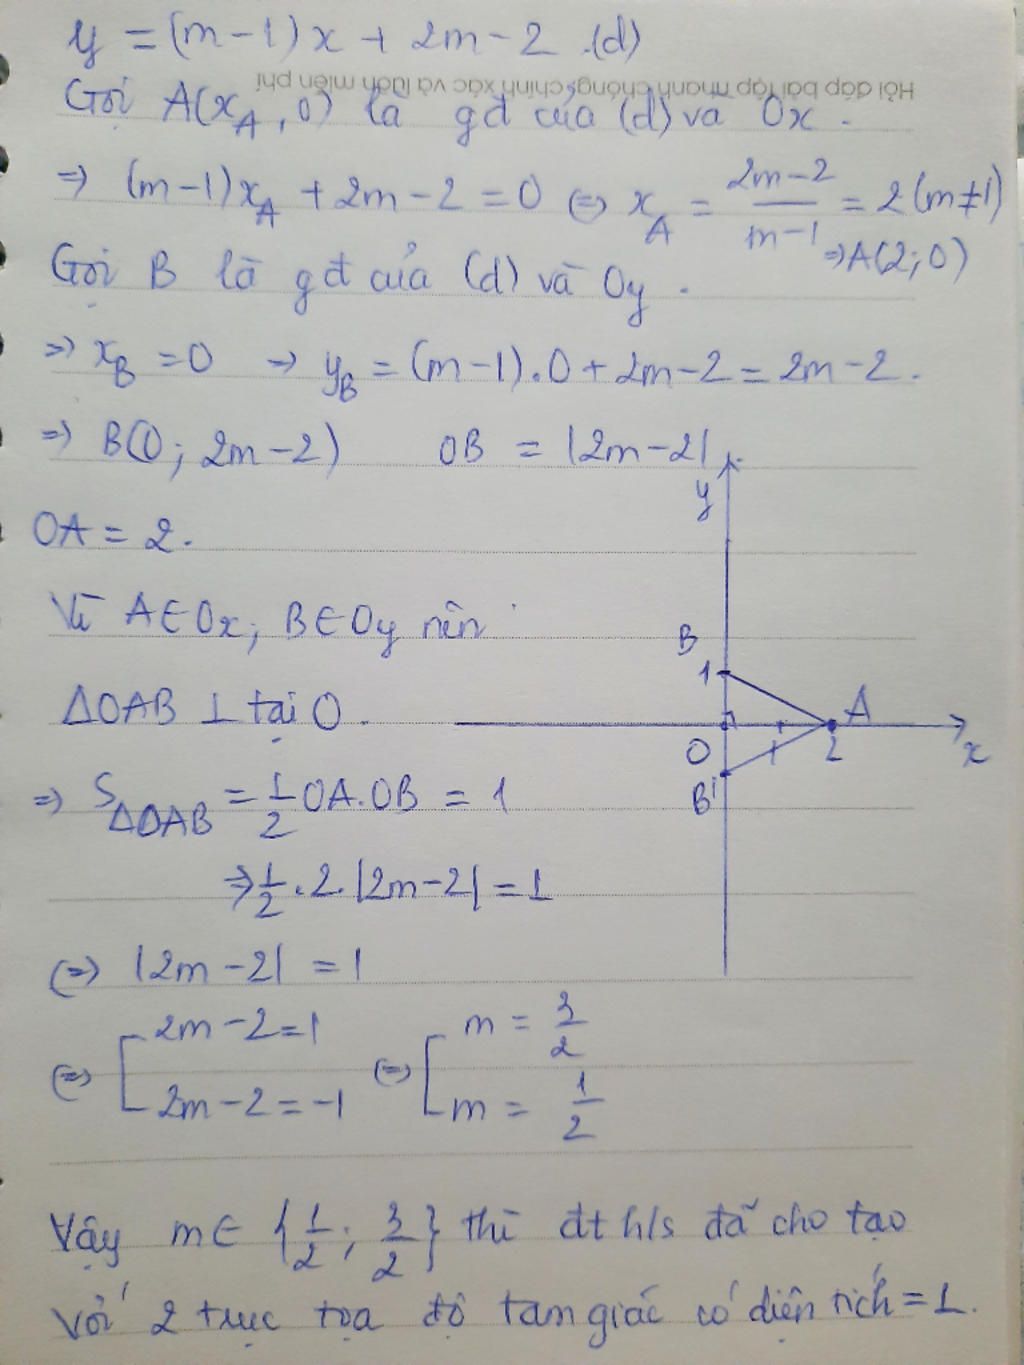 y = (m-1)x + 2m-2 .(d)
Hỏi đáp bài tập nhanh chóng, chính xác và luôn miễn phí
Gọi A(x_A, 0) là gđ của (d) và Ox.
=> (m-1)x_A + 2m-2 = 0 <=> x_A = \frac{2m-2}{m-1} = 2 (m≠1)
=> A(2; 0)
Gọi B là gđ của (d) và Oy.
=> x_B = 0 => y_B = (m-1).0 + 2m-2 = 2m-2.
=> B(0; 2m-2) OB = |2m-2|
OA = 2.
Vì A∈Ox; B∈Oy nên
ΔOAB ⊥ tại O.
=> S_{ΔOAB} = \frac{1}{2} OA.OB = 1
=> \frac{1}{2}.2.|2m-2| = 1
<=> |2m-2| = 1
<=> [ 2m-2 = 1 <=> [ m = \frac{3}{2}
2m-2 = -1 m = \frac{1}{2}
y
B
1
A
O
2
x
B'
Vậy m∈ {\frac{1}{2}; \frac{3}{2}} thì đt h/s đã cho tạo
với 2 trục tọa độ tam giác có diện tích = 1.